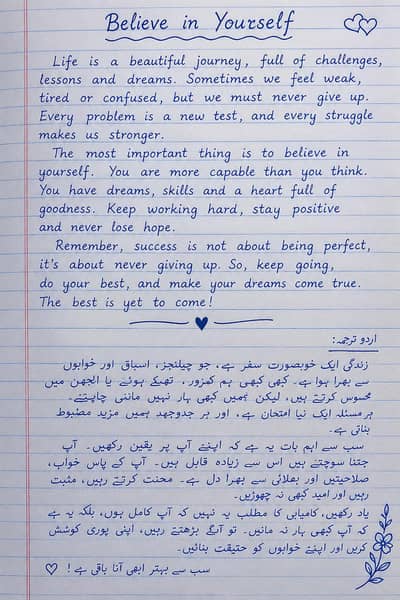 Believe in Yourself
Life is a beautiful journey, full of challenges,
lessons and dreams. Sometimes we feel weak,
tired or confused, but we must never give up.
Every problem is a new test, and every struggle
makes us stronger.
The most important thing is to believe in
yourself. You are more capable than you think.
You have dreams, skills and a heart full of
goodness. Keep working hard, stay positive
and never lose hope.
Remember, success is not about being perfect,
it's about never giving up. So, keep going,
do your best, and make your dreams come true.
The best is yet to come!
اردو ترجمہ:
زندگی ایک خوبصورت سفر ہے، جو چیلنجز، اسباق اور خوابوں
سے بھرا ہوا ہے۔ کبھی کبھی ہم کمزور، تھکے ہوئے یا الجھن میں
محسوس کرتے ہیں، لیکن ہمیں کبھی ہار نہیں ماننی چاہئے۔
ہر مسئلہ ایک نیا امتحان ہے، اور ہر جدوجھد ہمیں مزید مضبوط
بناتی ہے۔
سب سے اہم بات یہ ہے کہ اپنے آپ پر یقین رکھیں۔ آپ
جتنا سوچتے ہیں اس سے زیادہ قابل ہیں۔ آپ کے پاس خواب،
صلاحیتیں اور بھلائی سے بھرا دل ہے۔ محنت کرتے رہیں، مثبت
رہیں اور امید کبھی نہ چھوڑیں۔
یاد رکھیں، کامیابی کا مطلب یہ نہیں کہ آپ کامل ہوں، بلکہ یہ ہے
کہ آپ کبھی ہار نہ مانیں۔ تو آگے بڑھتے رہیں، اپنی پوری کوشش
کریں اور اپنے خوابوں کو حقیقت بنائیں۔
سب سے بہتر ابھی آنا باقی ہے!